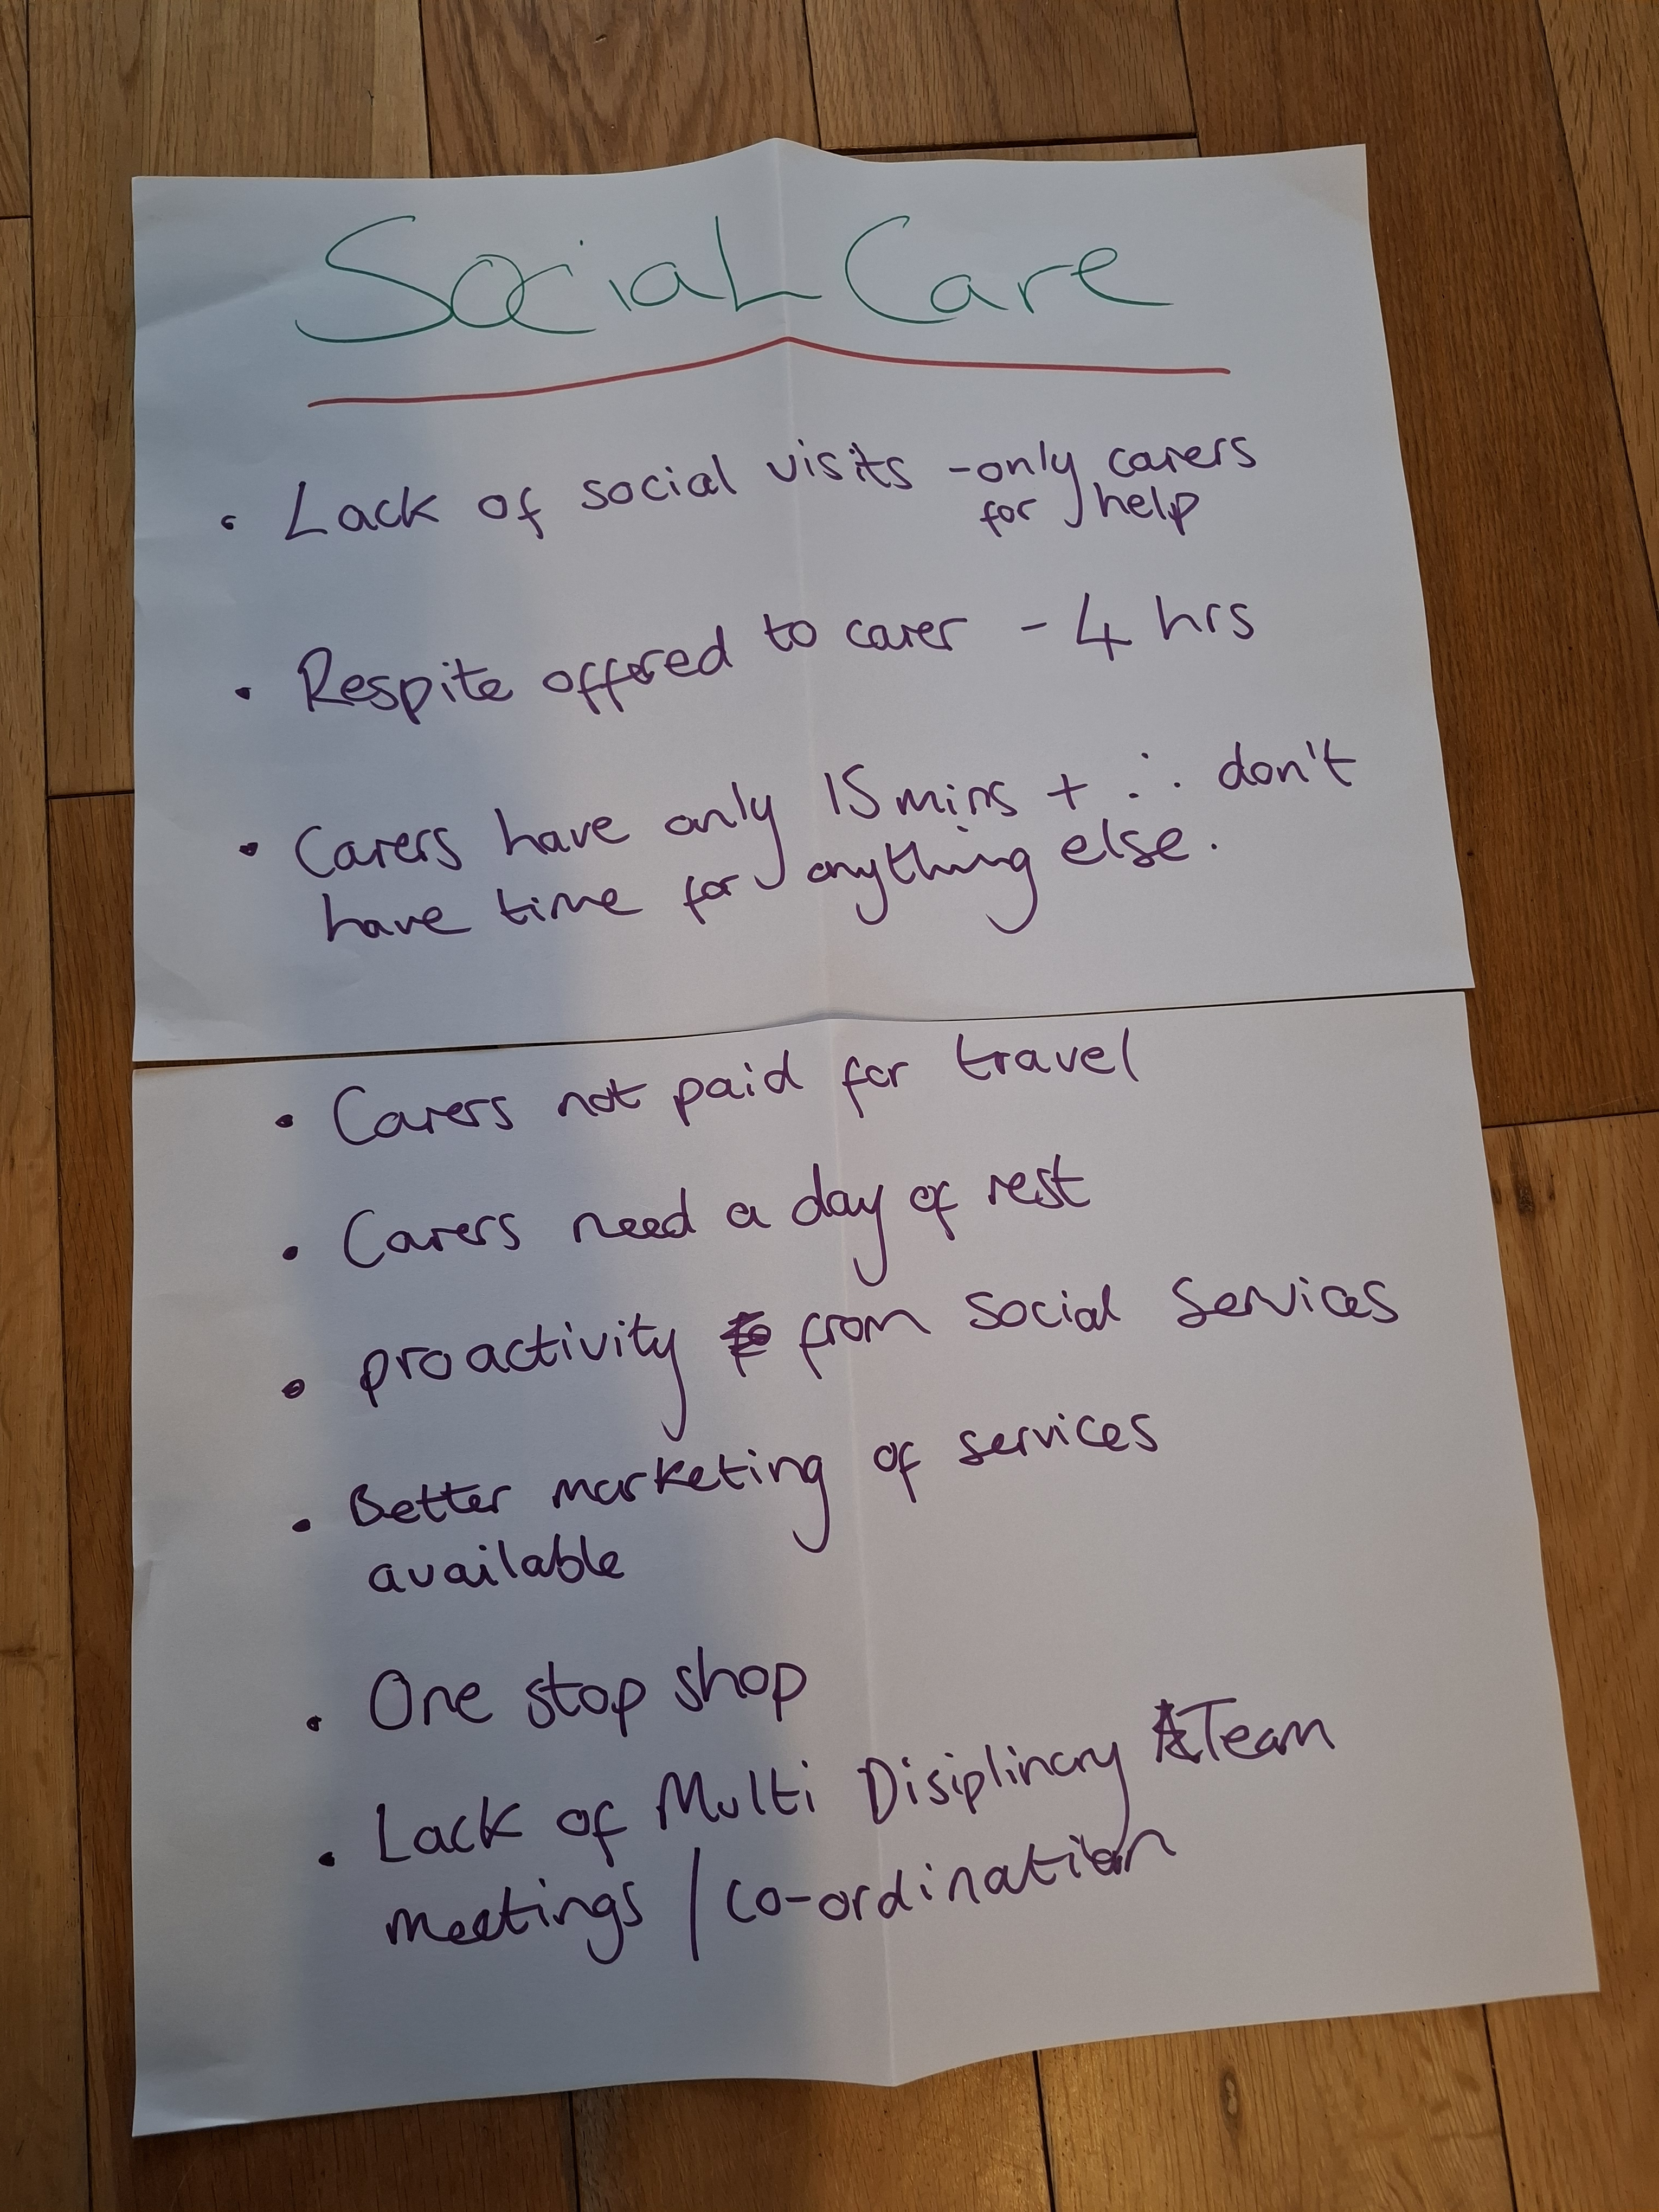 Social Care
• Lack of social visits - only carers
for help
• Respite offered to carer - 4 hrs
• Carers have only 15 mins + ∴ don't
have time for anything else.
• Carers not paid for travel
• Carers need a day of rest
• proactivity from social services
• Better marketing of services
available
• One stop shop
• Lack of Multi Disiplinary Team
meetings / co-ordination